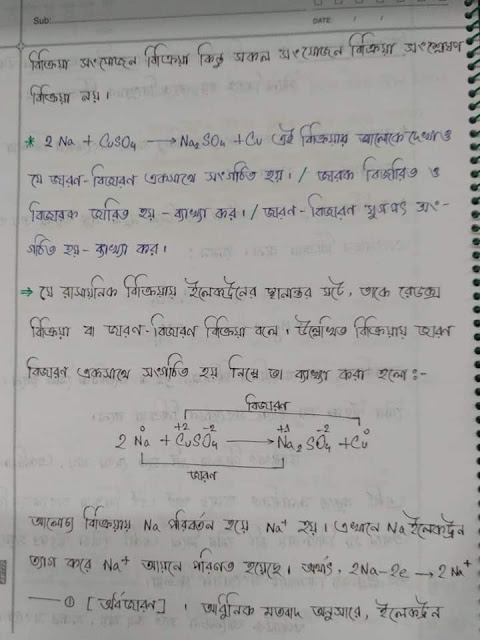 Sub:
DATE: / /
বিক্রিয়া সংযোজন বিক্রিয়া কিন্তু সকল সংযোজন বিক্রিয়া সংশ্লেষণ
বিক্রিয়া নয়।
* 2 Na + CuSO4 → Na2SO4 + Cu এই বিক্রিয়ার আলোকে দেখাও
যে জারণ-বিজারণ একসাথে সংগঠিত হয়। / জারক বিজারিত ও
বিজারক জারিত হয় - ব্যাখ্যা কর। / জারণ-বিজারণ যুগপৎ সং-
গঠিত হয় - ব্যাখ্যা কর।
⇒ যে রাসায়নিক বিক্রিয়ায় ইলেকট্রনের স্থানান্তর ঘটে, তাকে রেডক্স
বিক্রিয়া বা জারণ-বিজারণ বিক্রিয়া বলে। উল্লেখিত বিক্রিয়ায় জারণ
বিজারণ একসাথে সংগঠিত হয় নিম্নে তা ব্যাখ্যা করা হলো:-
বিজারণ
0 +2 -2 +1 -2 0
2 Na + CuSO4 → Na2SO4 + Cu
জারণ
আলোচ্য বিক্রিয়ায় Na পরিবর্তন হয়ে Na+ হয়। এখানে Na ইলেকট্রন
ত্যাগ করে Na+ আয়নে পরিণত হয়েছে। অর্থাৎ, 2Na-2e → 2Na+
—— ① [অর্ধজারণ]। আধুনিক মতবাদ অনুসারে, ইলেকট্রন